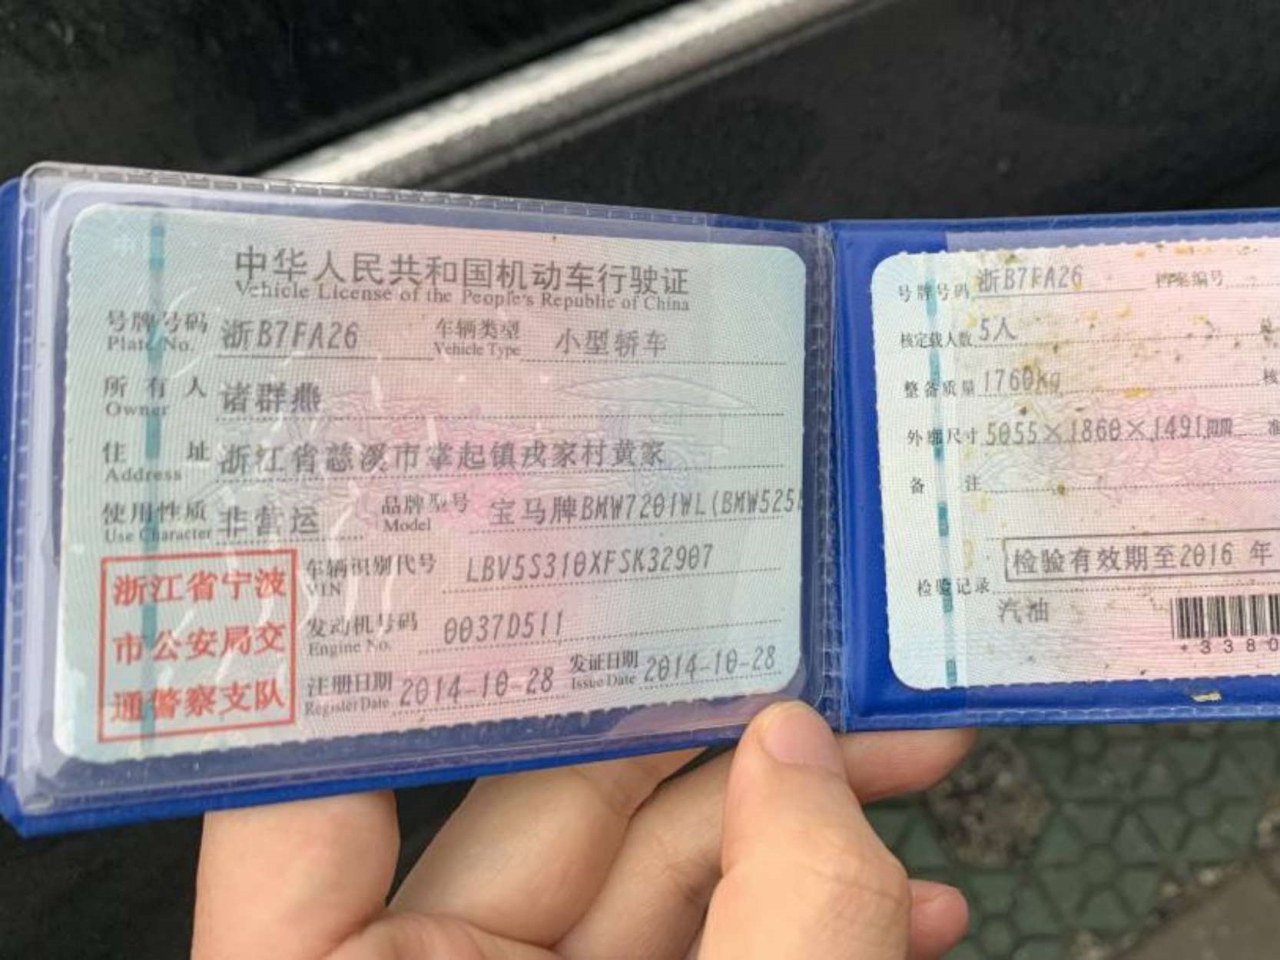 中华人民共和国机动车行驶证
Vehicle License of the People's Republic of China
号牌号码 浙B7FA26 车辆类型 小型轿车
Plate No. Vehicle Type
所有人 诸群燕
Owner
住址 浙江省慈溪市掌起镇戎家村黄家
Address
使用性质 非营运 品牌型号 宝马牌BMW7201WL(BMW525
Use Character Model
车辆识别代号 LBV5S310XFSK32907
VIN
发动机号码 0037D511
Engine No.
注册日期 2014-10-28 发证日期 2014-10-28
Register Date Issue Date
浙江省宁波
市公安局交
通警察支队
号牌号码 浙B7FA26 档案编号
核定载人数 5人 总
整备质量 1760kg 核
外廓尺寸 5055×1860×1491mm 准
备注
检验有效期至2016 年
检验记录
汽油
*3380